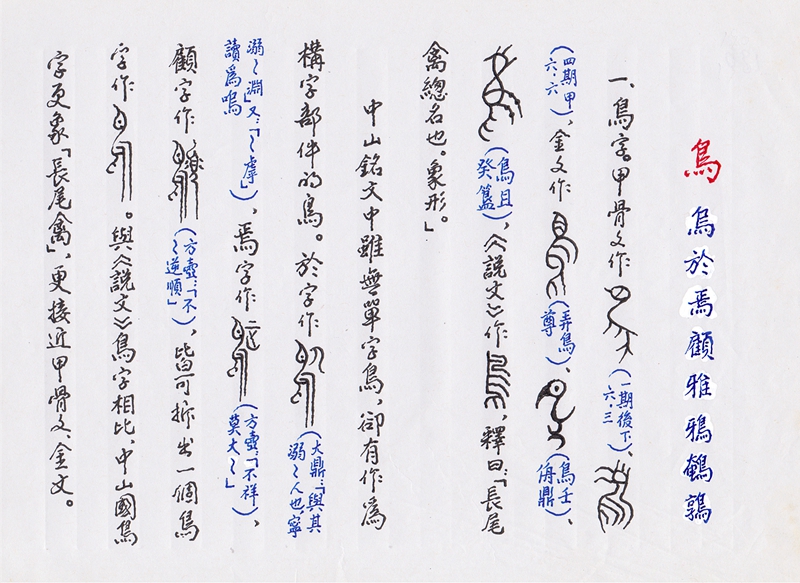 鳥 烏於焉顧雅鴉鵪鶉
一、鳥字。甲骨文作（一期後下六.三）、
（四期甲六.六）、金文作（弄鳥尊）、（鳥壬侜鼎）、
（鳥且癸簋），《說文》作，釋曰：「長尾
禽總名也。象形。」
中山銘文中雖無單字鳥，卻有作為
構字部件的鳥。於字作（大鼎：「與其
溺～人也，寧溺～淵」又：「～虖」讀為嗚），焉字作（方壺：「不祥莫大～」），
顧字作（方壺：「不～逆順」），皆可拆出一個鳥
字作。與《說文》鳥字相比，中山國鳥
字更象「長尾禽」，更接近甲骨文、金文。